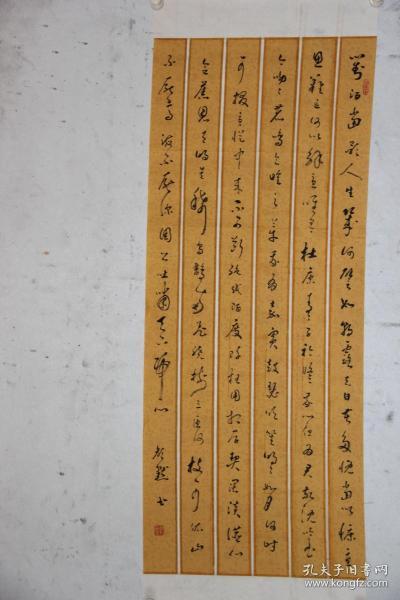 對酒當歌人生幾何譬如朝露去日苦多慨當以慷憂
思難忘何以解憂唯有杜康青青子衿悠悠我心但為君故沈吟至
今呦呦鹿鳴食野之苹我有嘉賓鼓瑟吹笙明明如月何時
可掇憂從中來不可斷絕越陌度阡枉用相存契闊談讌心
念舊恩月明星稀烏鵲南飛繞樹三匝何枝可依山
不厭高海不厭深周公吐哺天下歸心
書
孔夫子旧书网
www.kongfz.com